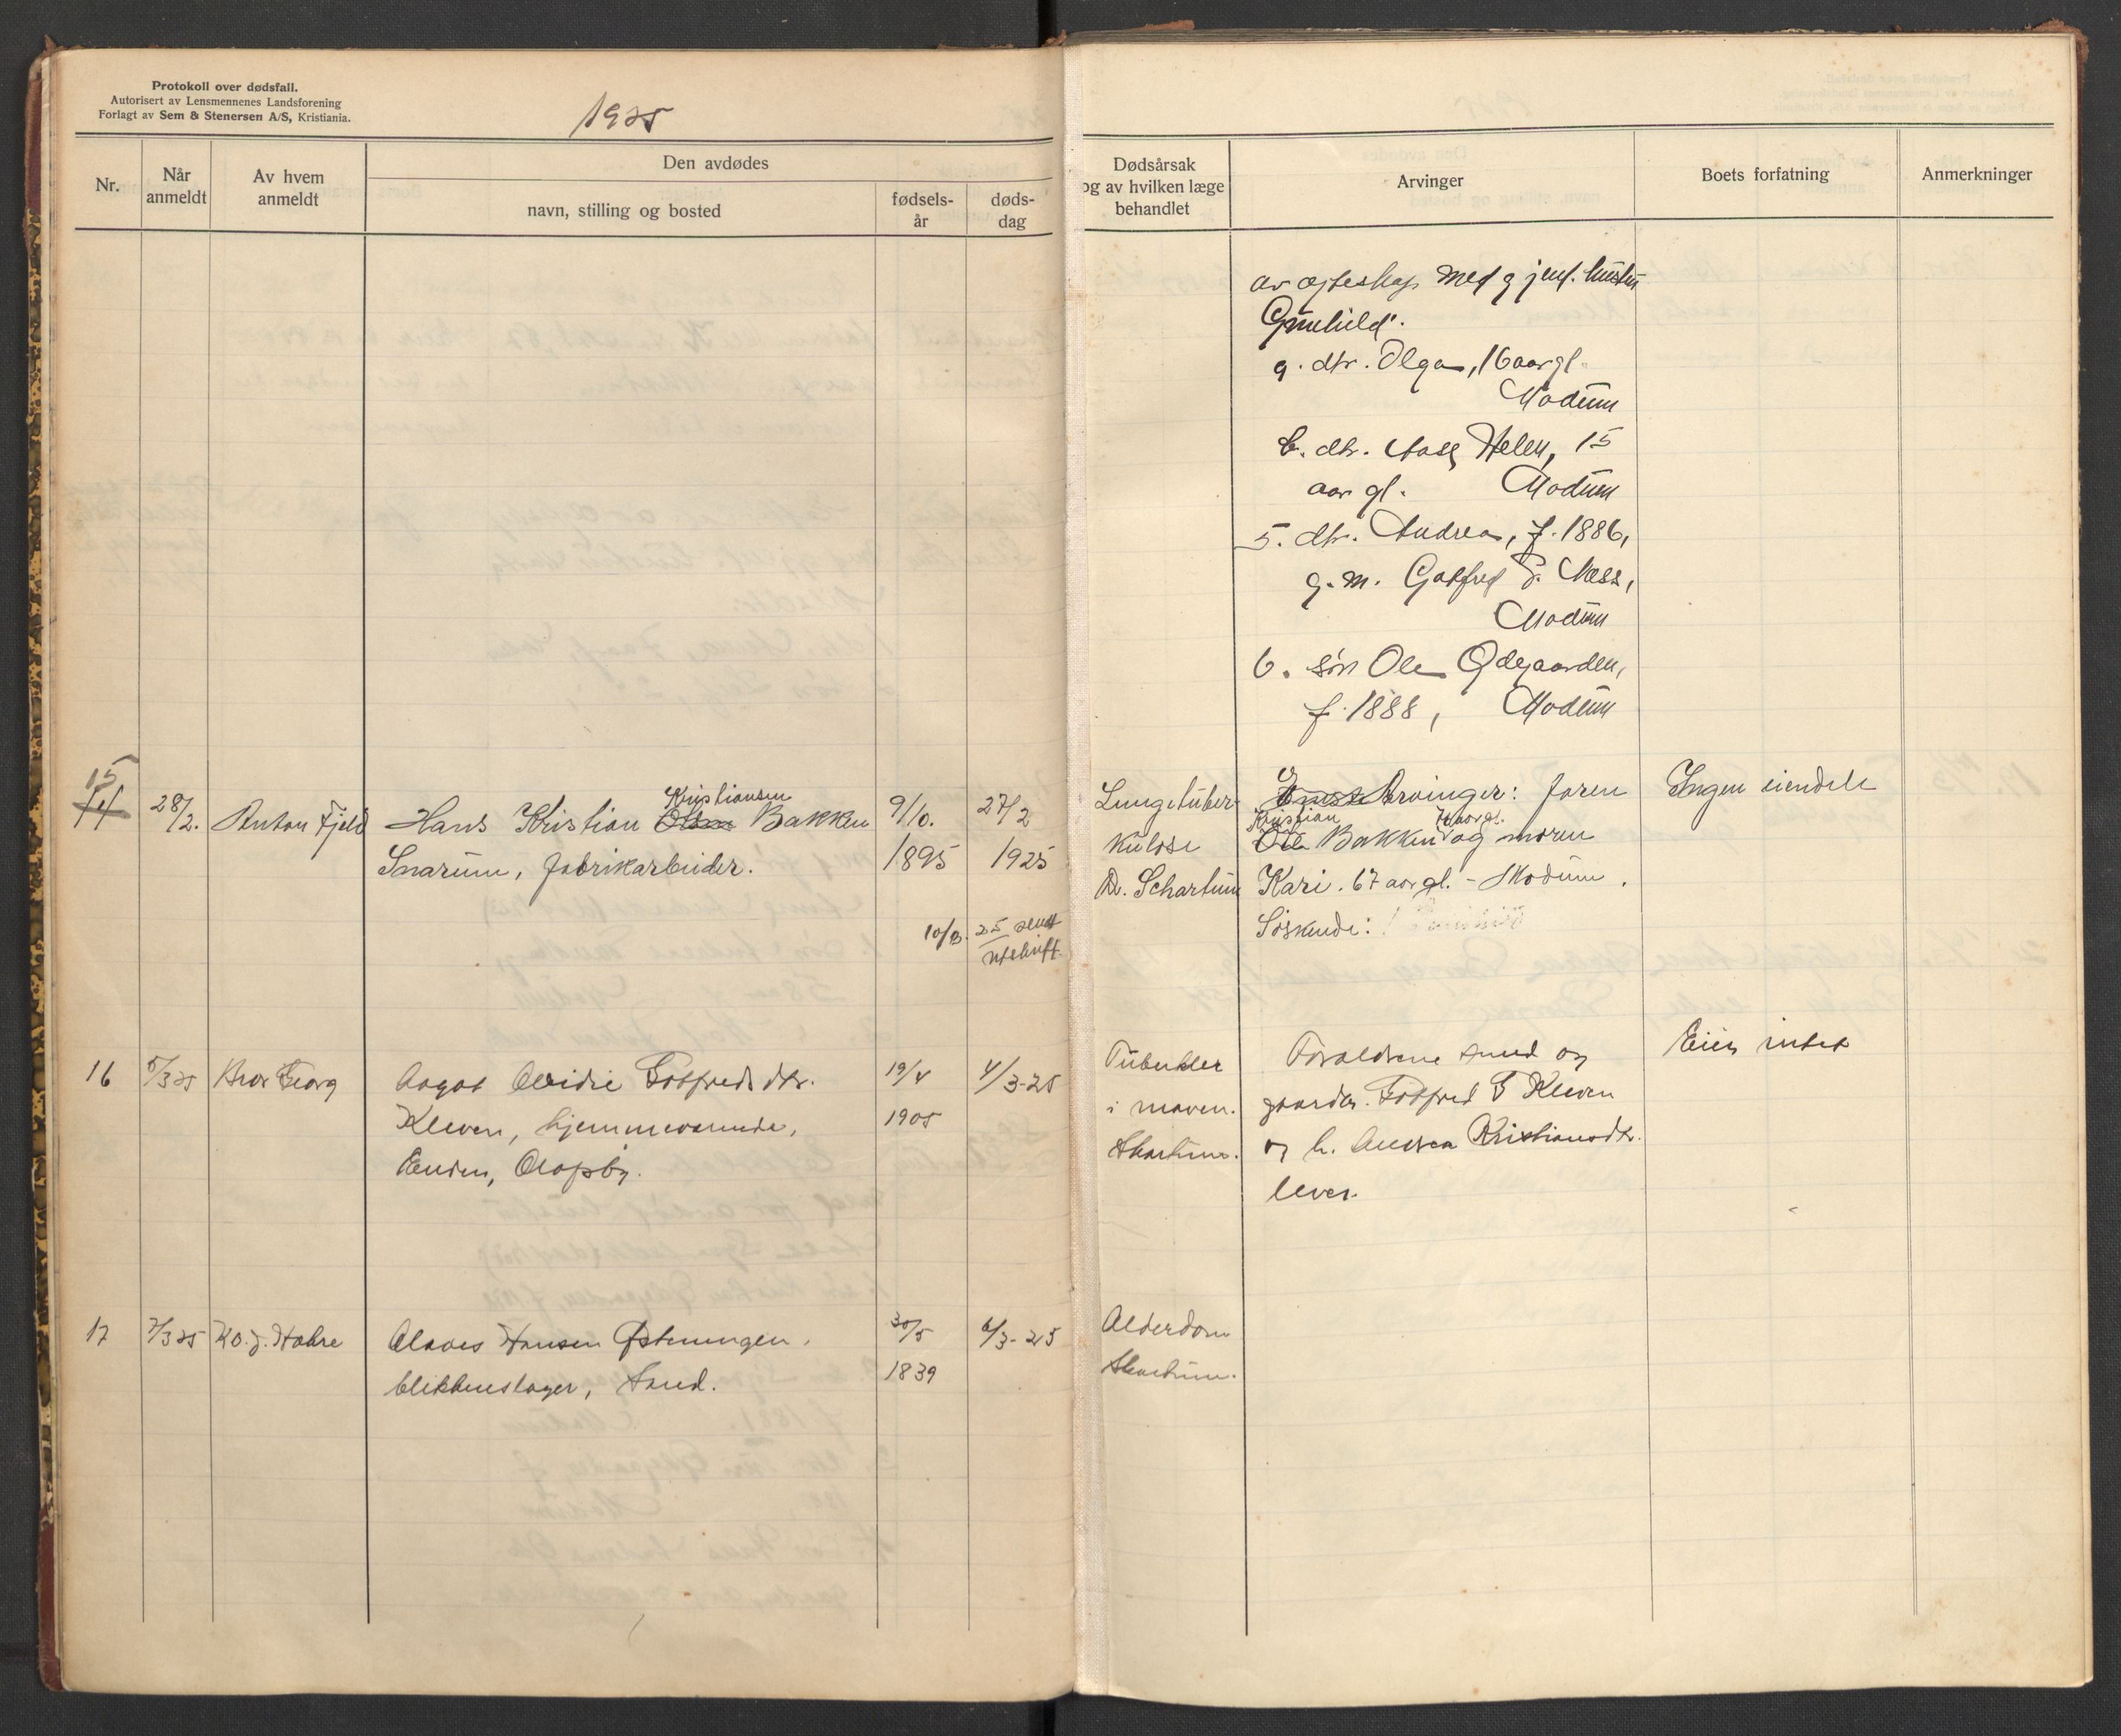 Protokoll over dødsfall.
Autorisert av Lensmennenes Landsforening
Forlagt av Sem & Stenersen A/S, Kristiania.
1925
Nr.
Når anmeldt
Av hvem anmeldt
Den avdødes
navn, stilling og bosted
fødsels-år
døds-dag
Dødsårsak og av hvilken læge behandlet
Arvinger
Boets forfatning
Anmerkninger
av egteskap med gjenl. hustru
Gunhild.
a. dtr. Olga, 16 aar gl.
Modum
b. dtr. Aase Helen, 15
aar gl. Modum
5. dtr. Andrea, f. 1886,
g. m. Gotfred P. Ness,
Modum
6. søn Ole Ødegaarden,
f. 1888, Modum
15
14
28/2.
Anton Fjeld
Kristiansen
Hans Kristian Olsen Bakken
Snarum, fabrikarbeider.
9/10.
1895
27/2
1925
10/3. 25 sendt
utskrift.
Lungetuber
kulose
Dr. Schartum
Arvinger: faren
Kristian 70 aar gl.
Ole Bakken og moren
Kari. 67 aar gl. - Modum.
Søskende:
Ingen eiendele
16
5/3 25
Bror Georg
Aagot Ovidie Gotfredsdtr.
Kleven, hjemmeværende,
Enden, Olapsby.
19/4
1905
4/3-25
Tuberkler
i maven.
Skartum.
Forældrene Smed og
gaardbr. Gotfred G Kleven
og h. Andrea Kristiansdtr.
lever.
Eier intet
17
7/3 25
K.O.J. Hobre
Olaves Hansen Østenengen,
blikkenslager, Sand.
30/5
1839
6/3-25
Alderdom
Skartum.